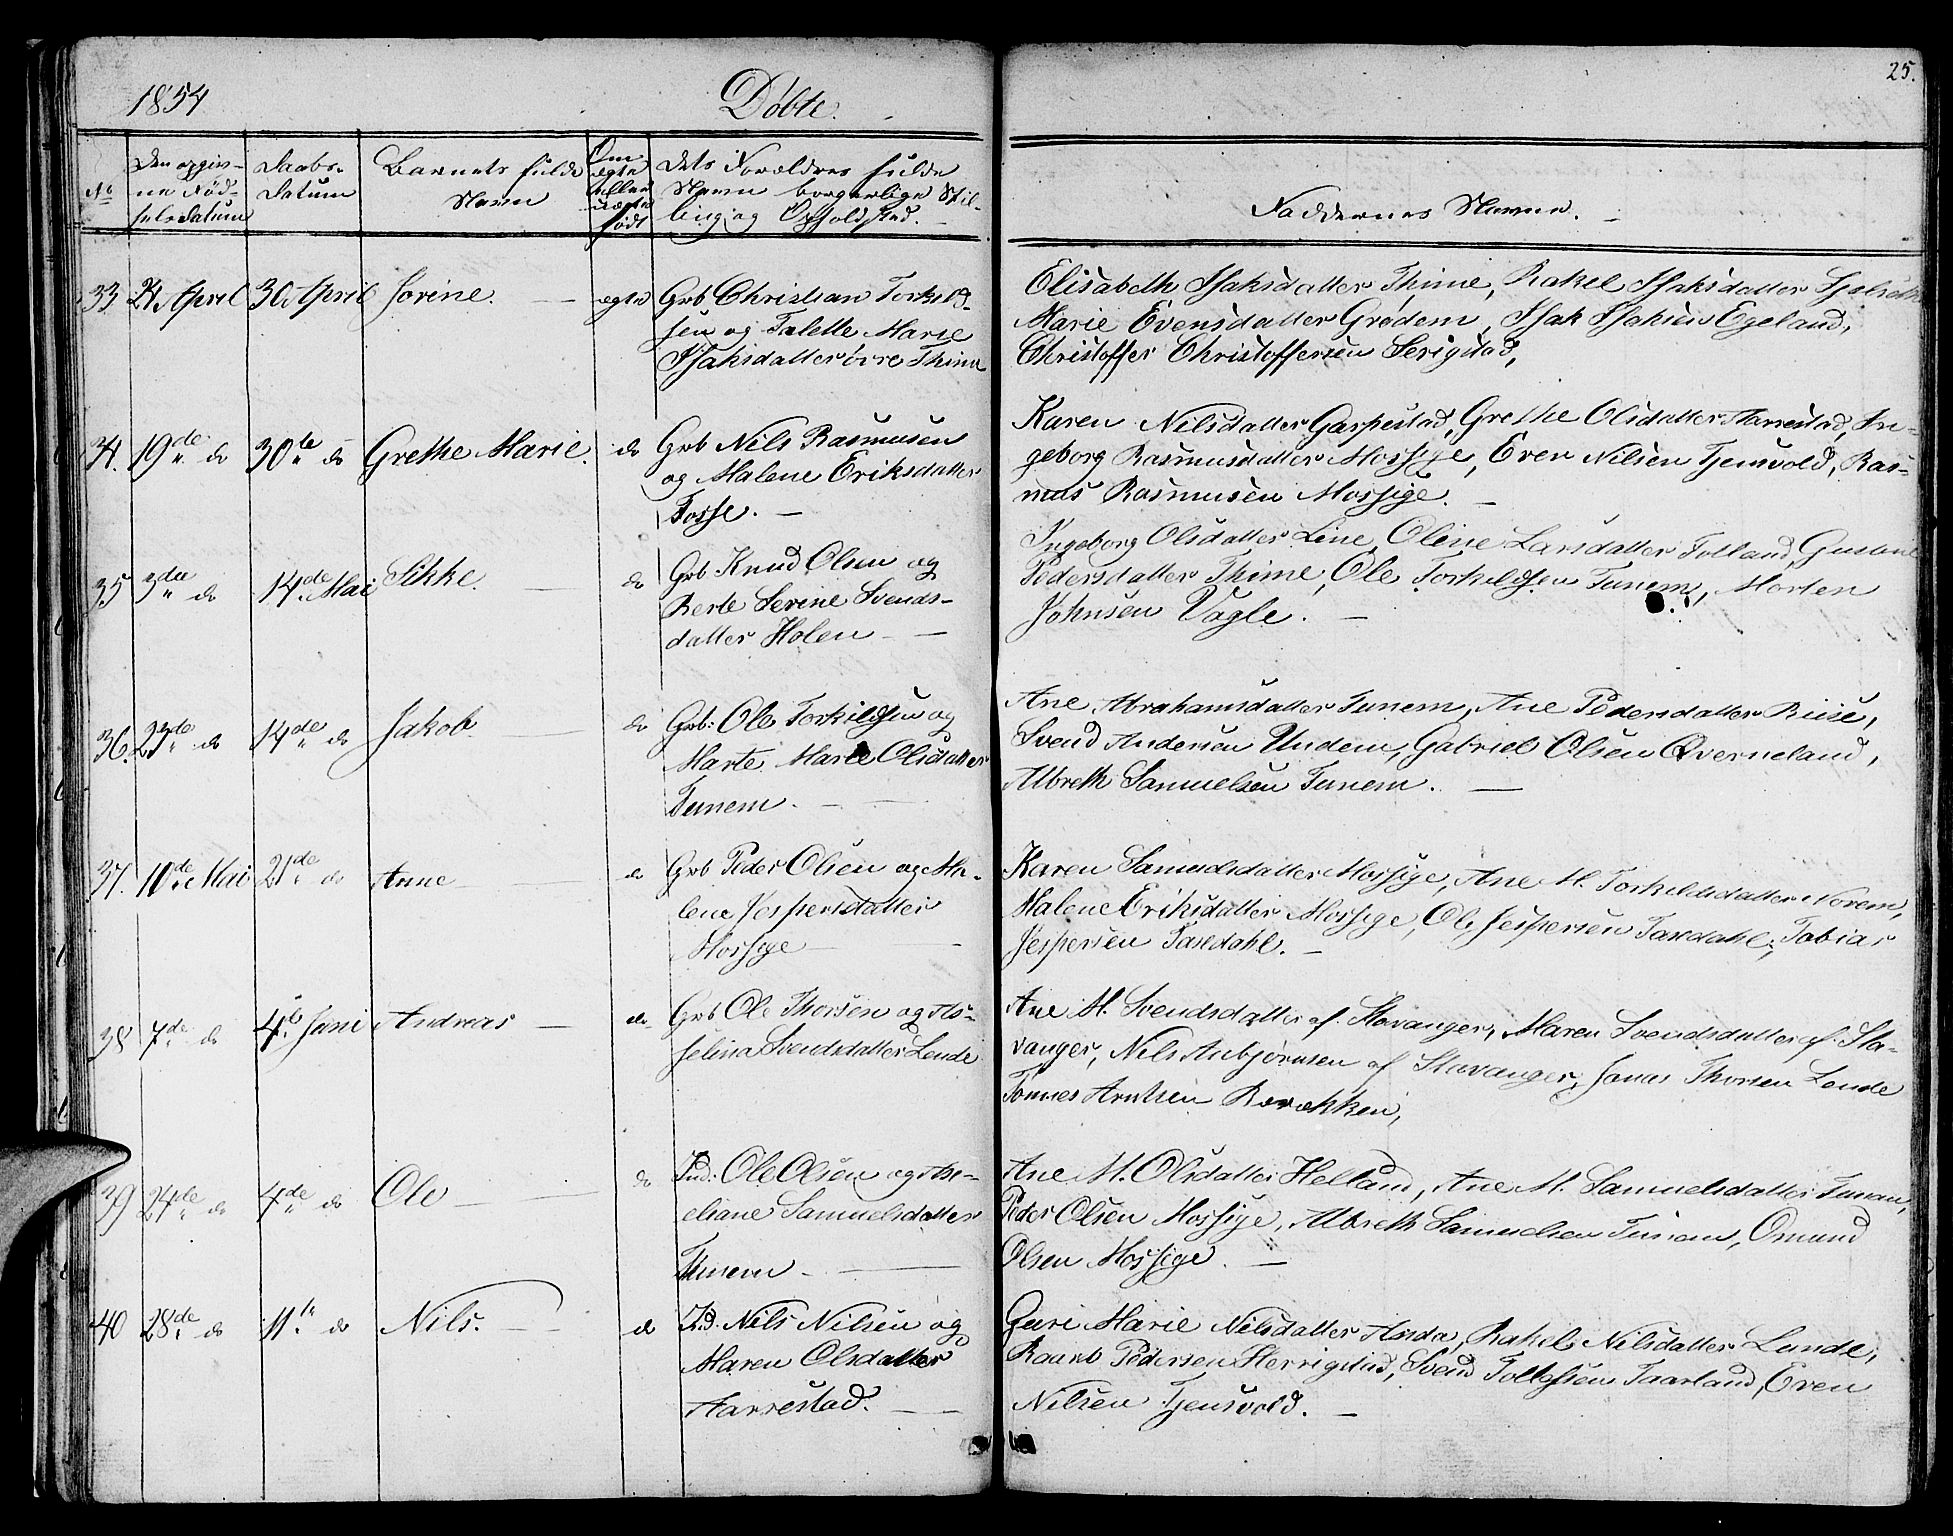 1854 Døbte. 25.
No Den opgiv- Daabs- Barnets fulde Om Dets Forældres fulde
ne Fød- Datum Navn ægte Navn borgerlige Stil-
selsdatum eller ling og Opholdsted.
uægte
født
Faddernes Navne.
33 24 April 30 April Sorine. ægte Grb Christian Torkild-
sen og Talette Marie
Isaksdatter øvre Thime
Elisabeth Isaksdatter Thime, Rakel Isaksdatter
Marie Evensdatter Grødem, Isak Isaksen Egeland,
Christoffer Christoffersen Serigstad,
34. 19de do 30te do Grethe Marie. do Grb Nils Rasmusen
og Malene Eriksdatter
Fosse.
Karen Nilsdatter Garpestad, Grethe Olsdatter Aarrestad, In-
geborg Rasmusdatter Mossige, Even Nilsen Tjensvold, Ras-
mus Rasmusen Mossige.
35 3die do 14de Mai Sikke. do Grb Knud Olsen og
Berte Serine Svends-
datter Holen
Ingeborg Olsdatter Line, Oline Larsdatter Folland, Gustene
Pedersdatter Thime, Ole Torkildsen Tunem, Morten
Johnsen Vagle.
36. 23de do 14de do Jakob do Grb: Ole Torkildsen og
Marte Marie Olsdatter
Tunem.
Ane Abrahamsdatter Tunem, Ane Pedersdatter Riise,
Svend Andersen Undem, Gabriel Olsen Qverneland,
Albreth Samuelsen Tunem.
37. 10de Mai 21de do Anne do Grb Peder Olsen og Ma-
lene Jespersdatter
Mossige
Karen Samuelsdatter Mossige, Ane M. Torkildsdatter Norem,
Malene Eriksdatter Mossige, Ole Jespersen Taxedahl, Tobias
Jespersen Taxedahl.
38 7de do 4de Juni Andreas do Grb Ole Thorsen og As-
selina Svendsdatter Lende
Ane M. Svendsdatter af Stavanger, Maren Svendsdatter af Sta-
vanger, Nils Anbjørnsen af Stavanger, Jonas Thorsen Lende
Tønnes Arntsen Rævækken,
39 24de do 4de do Ole do Ind: Ole Olsen og Ase-
eliane Samuelsdatter
Tunem
Ane M. Olsdatter Helland, Ane M. Samuelsdatter Tunem,
Peder Olsen Mossige, Albreth Samuelsen Tunem, Omund
Olsen Mossige.
40 28de do 11te do Nils. do I.d. Nils Nilsen og
Maren Olsdatter
Aarrestad.
Guri Marie Nilsdatter Aasda, Rakel Nilsdatter Lunde,
Baard Pedersen Herrigstad, Svend Tollefsen Taarland, Even
Nilsen Tjensvold.